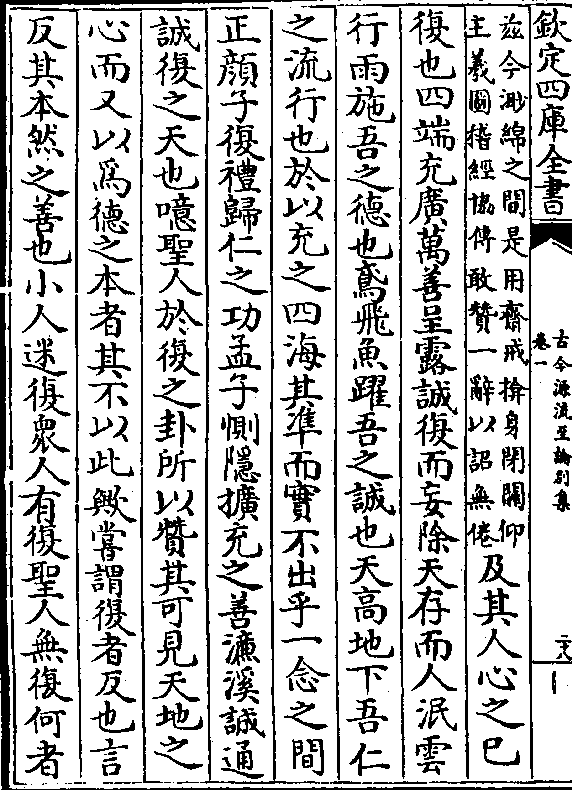 欽定四庫全書
古今源流至論別集
卷一
茲今渺綿之間是用齋戒揜身閉關仰
主羲圖稽經協傳敢贊一辭以詔無倦
及其人心之已
復也四端充廣萬善呈露誠復而妄除天存而人泯雲
行雨施吾之德也鳶飛魚躍吾之誠也天高地下吾仁
之流行也於以充之四海其準而實不出乎一念之間
正顔子復禮歸仁之功孟子惻隱擴充之善濂溪誠通
誠復之天也噫聖人於復之卦所以贊其可見天地之
心而又以爲德之本者其不以此歟嘗謂復者反也言
反其本然之善也小人迷復衆人有復聖人無復何者